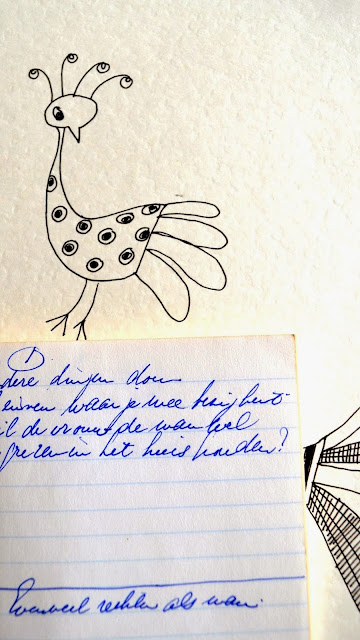 1)
dere dingen doen
waar je mee bezig bent
il de vrouw de man
in het huis houden?
Evenveel rechten als man.